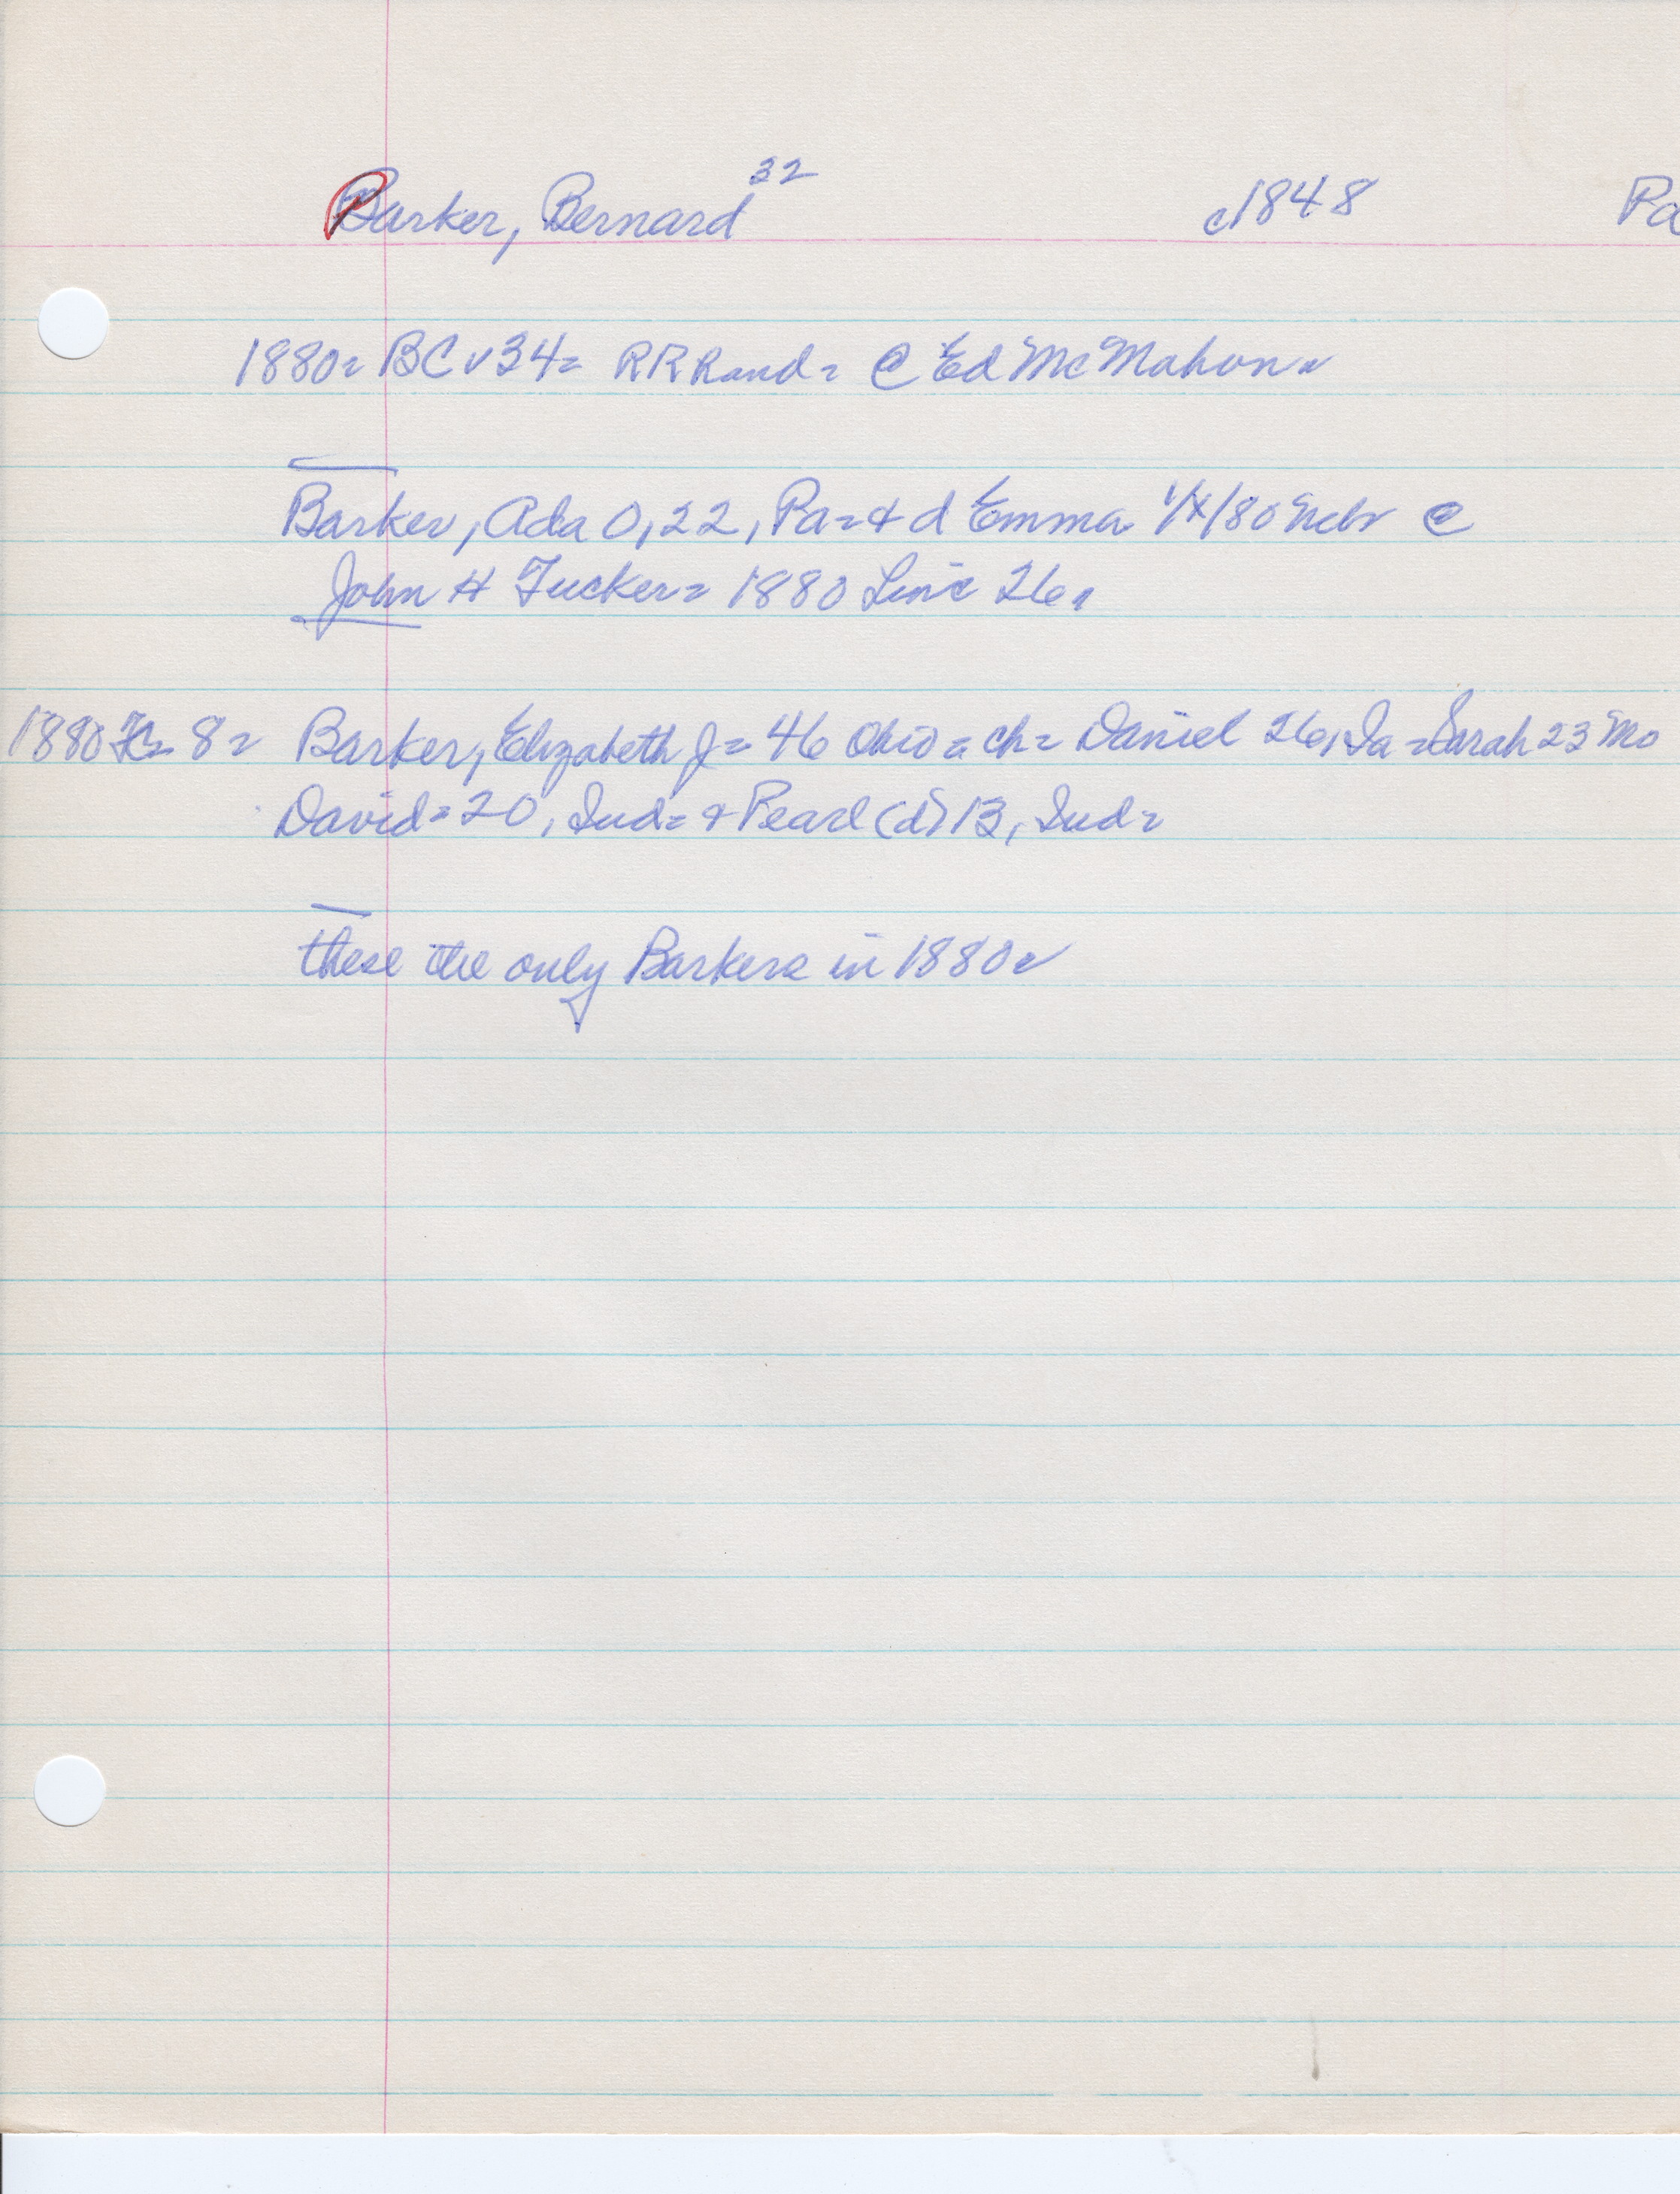 Barker, Bernard 32 c1848 Pa
1880= BCv34= RR Rand= @ Ed McMahon=
Barker, Ada O, 22, Pa=+ d Emma 1/X/80 Nebr @
John H Tucker= 1880 Line 26,
1880 8= Barker, Elizabeth J= 46 Ohio= ch= Daniel 26, Ia=Sarah 23 Mo
David=20, Ind= + Pearl (d) 13, Ind=
these the only Barkers in 1880